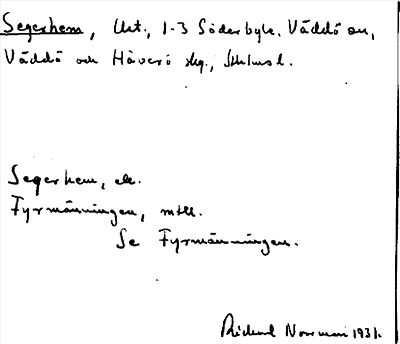 Segerhem, Utt., 1-3 Söderbyle, Väddö sn,
Väddö och Häverö skg., Sthlms l.
Segerhem, el.
Fyrmänningen, mtll.
Se Fyrmänningen.
Rickard Norman 1931.